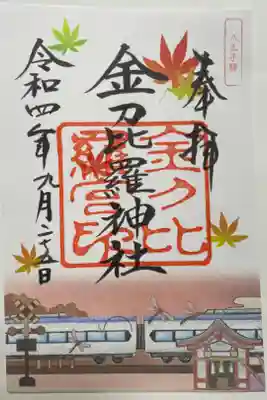 八王子市
奉拝
金刀比羅神社
金刀比羅宮印
令和四年九月二十五日